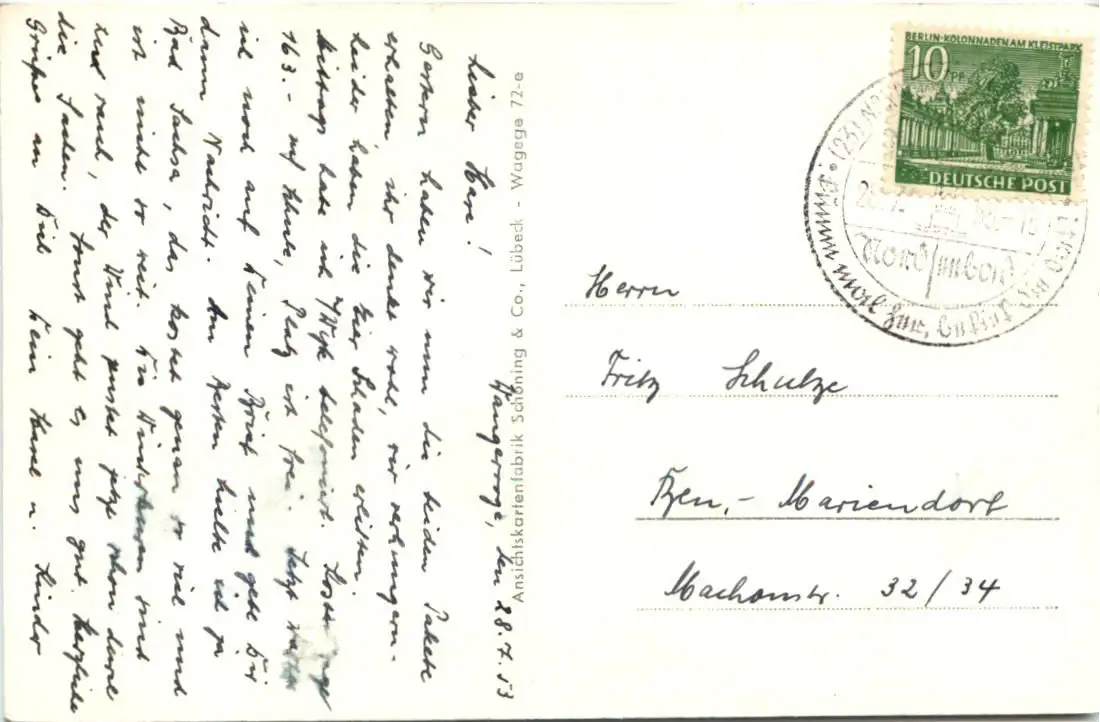 Wangerooge, den 28.7.53
Lieber Hase!
Gestern haben wir nun die beiden Pakete
erhalten, ihr denkt wohl, wir verhungern.
Leider haben die Eier Schaden erlitten.
Mittags habe ich telefoniert. Kosten
163.- mf Platz ist frei. Jetzt warte
ich noch auf Deinen Brief und gebe Dir
dann Nachricht. Am besten hielte ich ja
Bad Sachsa, das kostet genau so viel und
ist nicht so weit. Die Kinder sind
und rauh, der Wind pustet jetzt schon durch
die Sachen. Sonst geht es uns gut. Herzliche
Grüße an Dich Dein Hasel u. Kinder
Ansichtskartenfabrik Schöning & Co., Lübeck - Wagege 72-e
BERLIN-KOLONNADEN AM KLEISTPARK
10 PF
DEUTSCHE POST
(23)
Nordseebad
Herrn
Fritz Schulze
Bln.- Mariendorf
Machonstr. 32/34